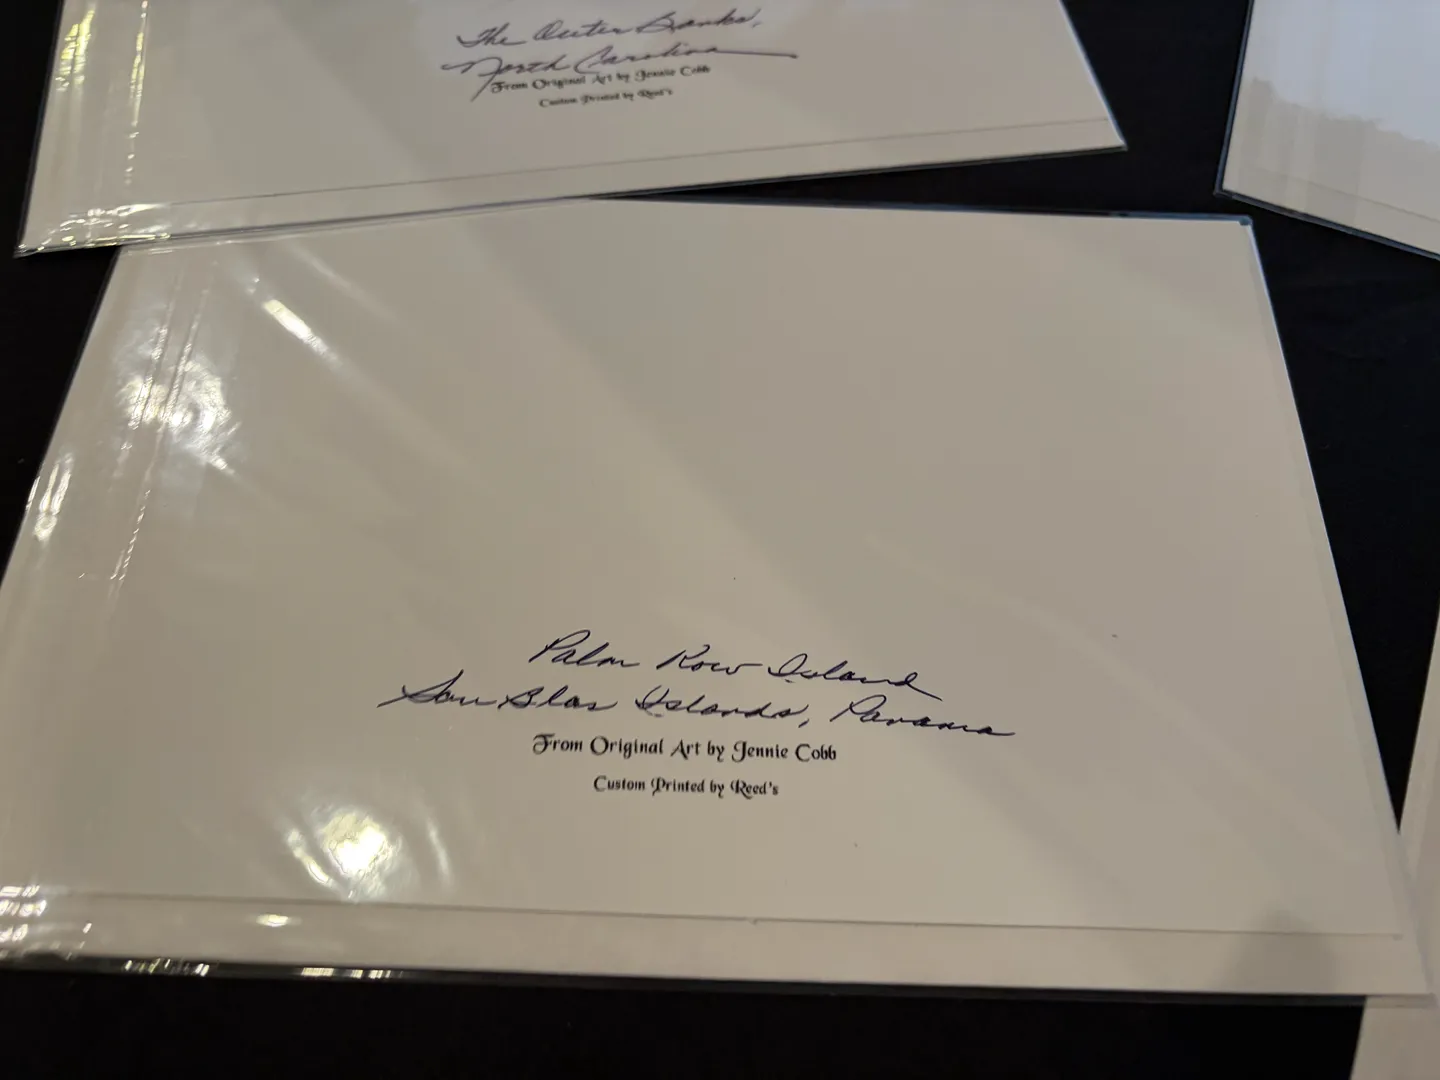 The Outer Banks,
North Carolina
From Original Art by Jennie Cobb
Custom Printed by Reed's
Palm Row Island
San Blas Islands, Panama
From Original Art by Jennie Cobb
Custom Printed by Reed's